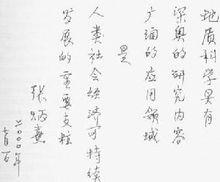 地质科学具有
深奥的研究内容
广涵的应用领域
是
人类社会经济可持续
发展的重要支柱
张炳熹
二〇〇〇年